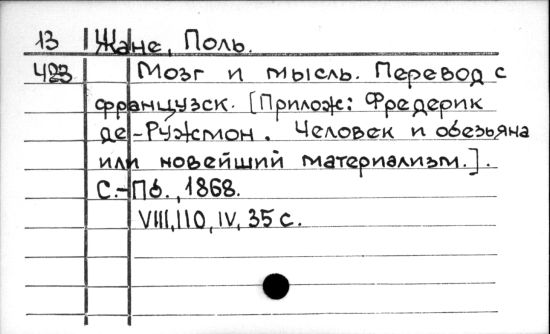 13 Жане, Поль.
423 Мозг и мысль. Перевод с
французск. [Прилож: Фредерик
де-Ружмон. Человек и обезьяна
или новейший материализм.].
С.-Пб., 1868.
VIII, 110, IV, 35 с.